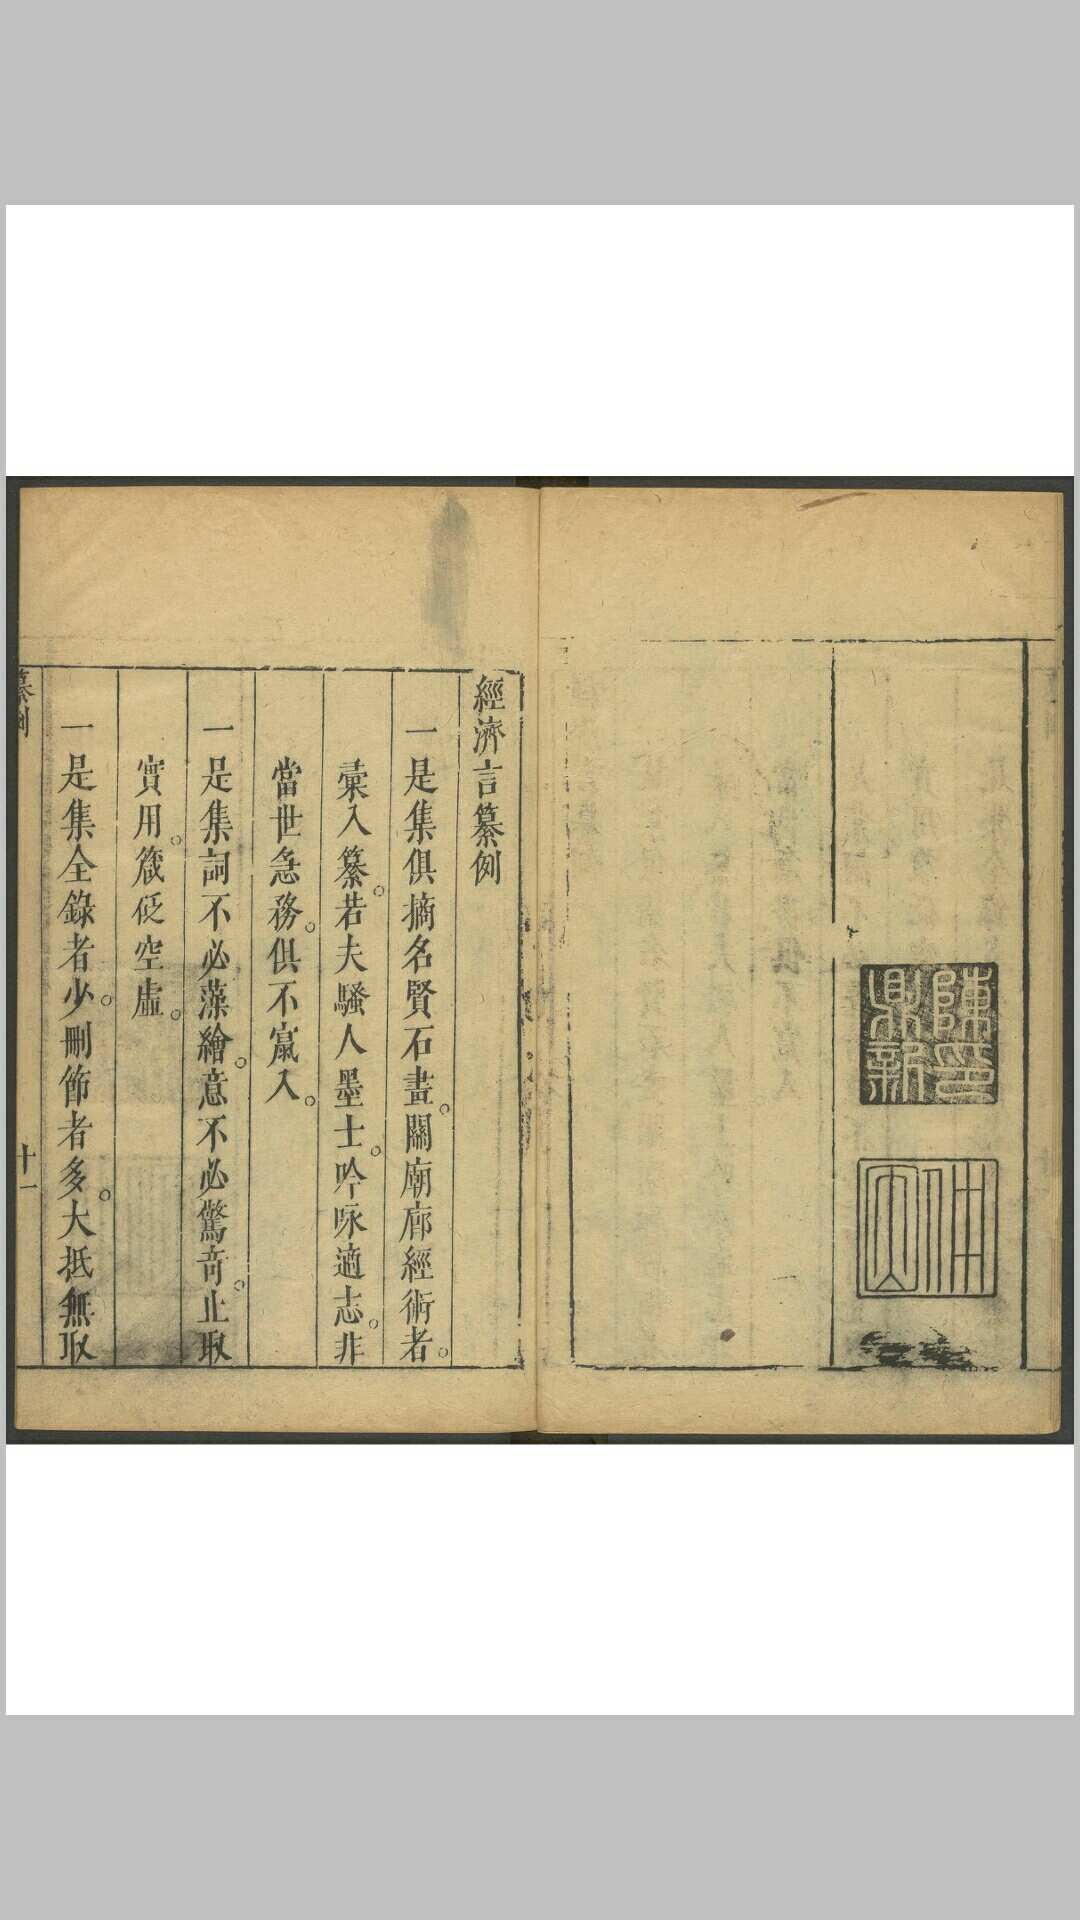 陳印鼎新
經濟言纂例
一是集俱摘名賢石畫。關廟廊經術者。
彙入纂。若夫騷人墨士。吟咏適志。非
當世急務。俱不竄入。
一是集詞不必藻繪。意不必驚奇。止取
實用。箴砭空虛。
一是集全錄者少。刪節者多。大抵無取
纂例
十一